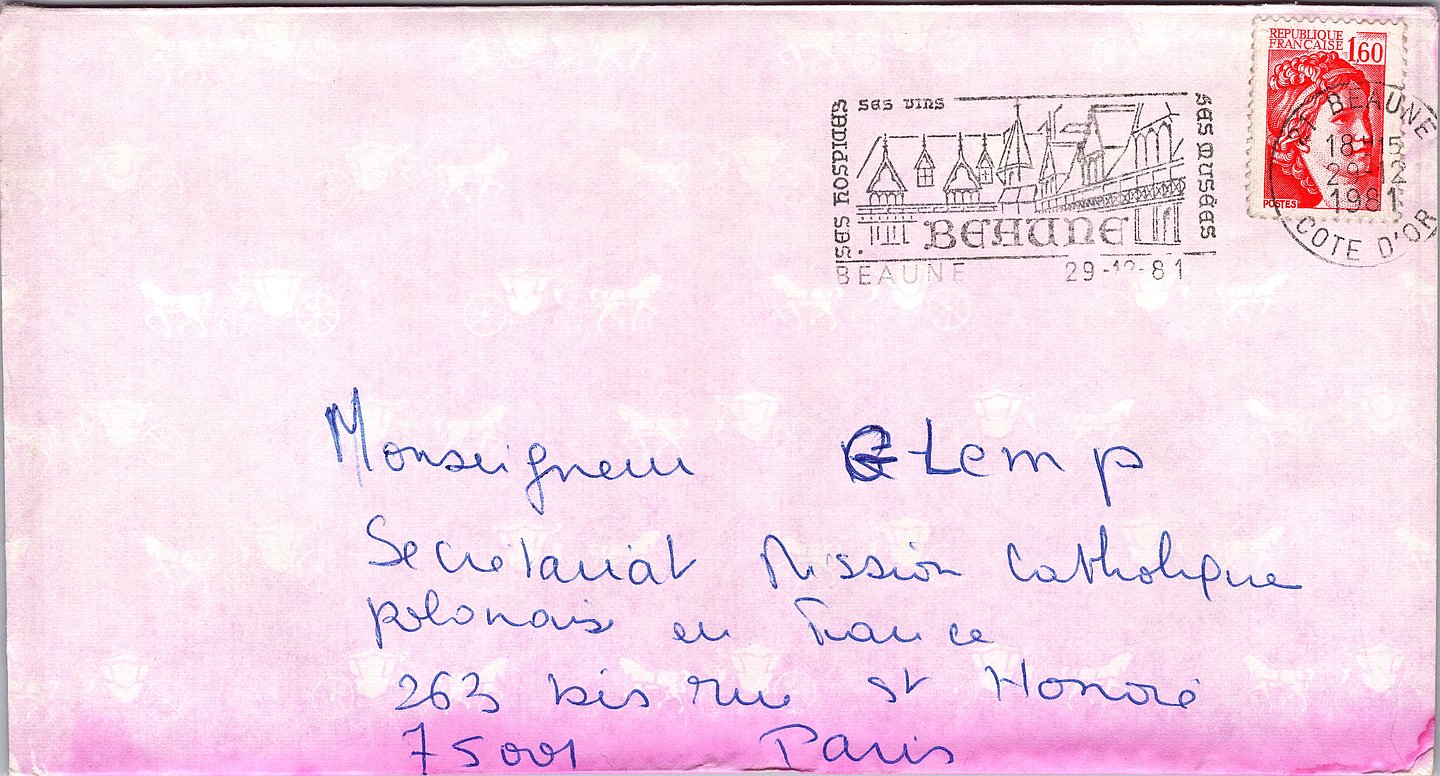 REPUBLIQUE
FRANÇAISE
1,60
POSTES
21 BEAUNE
18H15
29-12
1981
COTE D'OR
SES HOSPICES
SES VINS
SES MUSÉES
BEAUNE
BEAUNE 29-12-81
Monseigneur Glemp
Secrétariat Mission Catholique
polonais en France
263 bis rue st Honoré
75001 Paris